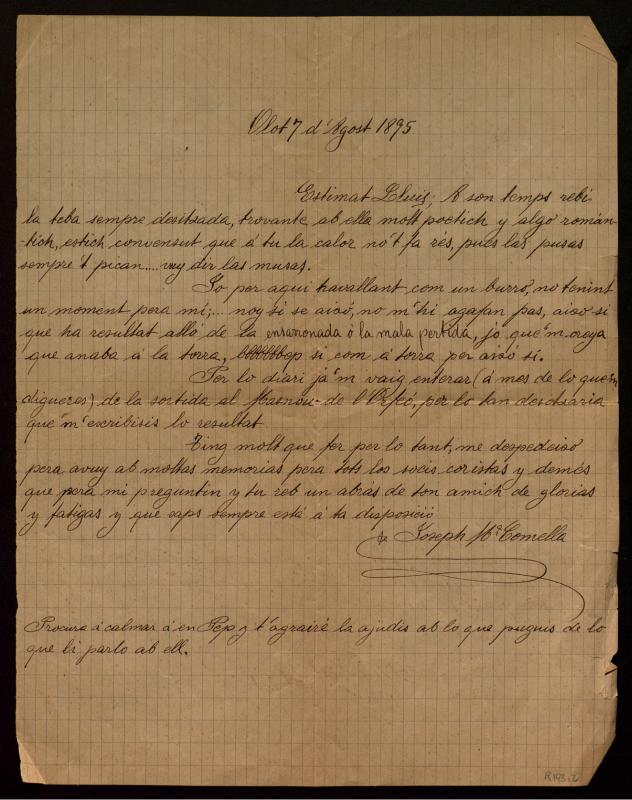 Olot 7 d'Agost 1895
Estimat Lluis; A son temps rebi
la teba sempre desitsada, trovante ab ella molt poétich y algo román-
tich, estich convensut que á tu la calor no't fa rés, pues las pusas
sempre't pican.... vuy dir las musas.
Jo per aqui travallant com un burro, no tenint
un moment pera mí;... noy si se aixó, no m'hi agafan pas, aixó si
que ha resultat alló de la ensarronada ó la mala partida, jo que'm creya
que anaba á la torra, ep si com á torra per aixó si.
Per lo diari já'm vaig enterar (á mes de lo que'm
digueres) de la sortida al Masnou de l'Orfeó, per lo tan desitsaria
que m'escribisis lo resultat
Ting molt que fer per lo tant, me despedeixo
pera avuy ab moltas memorias pera tots los socis coristas y demés
que pera mi preguntin y tu reb un abrás de ton amich de glorias
y fatigas y que saps sempre está á ta disposició
Joseph Mª Comella
Procura á calmar á en Pep y t'agrairé la ajudis ab lo que puguis de lo
que li parlo ab ell.
R.193.2